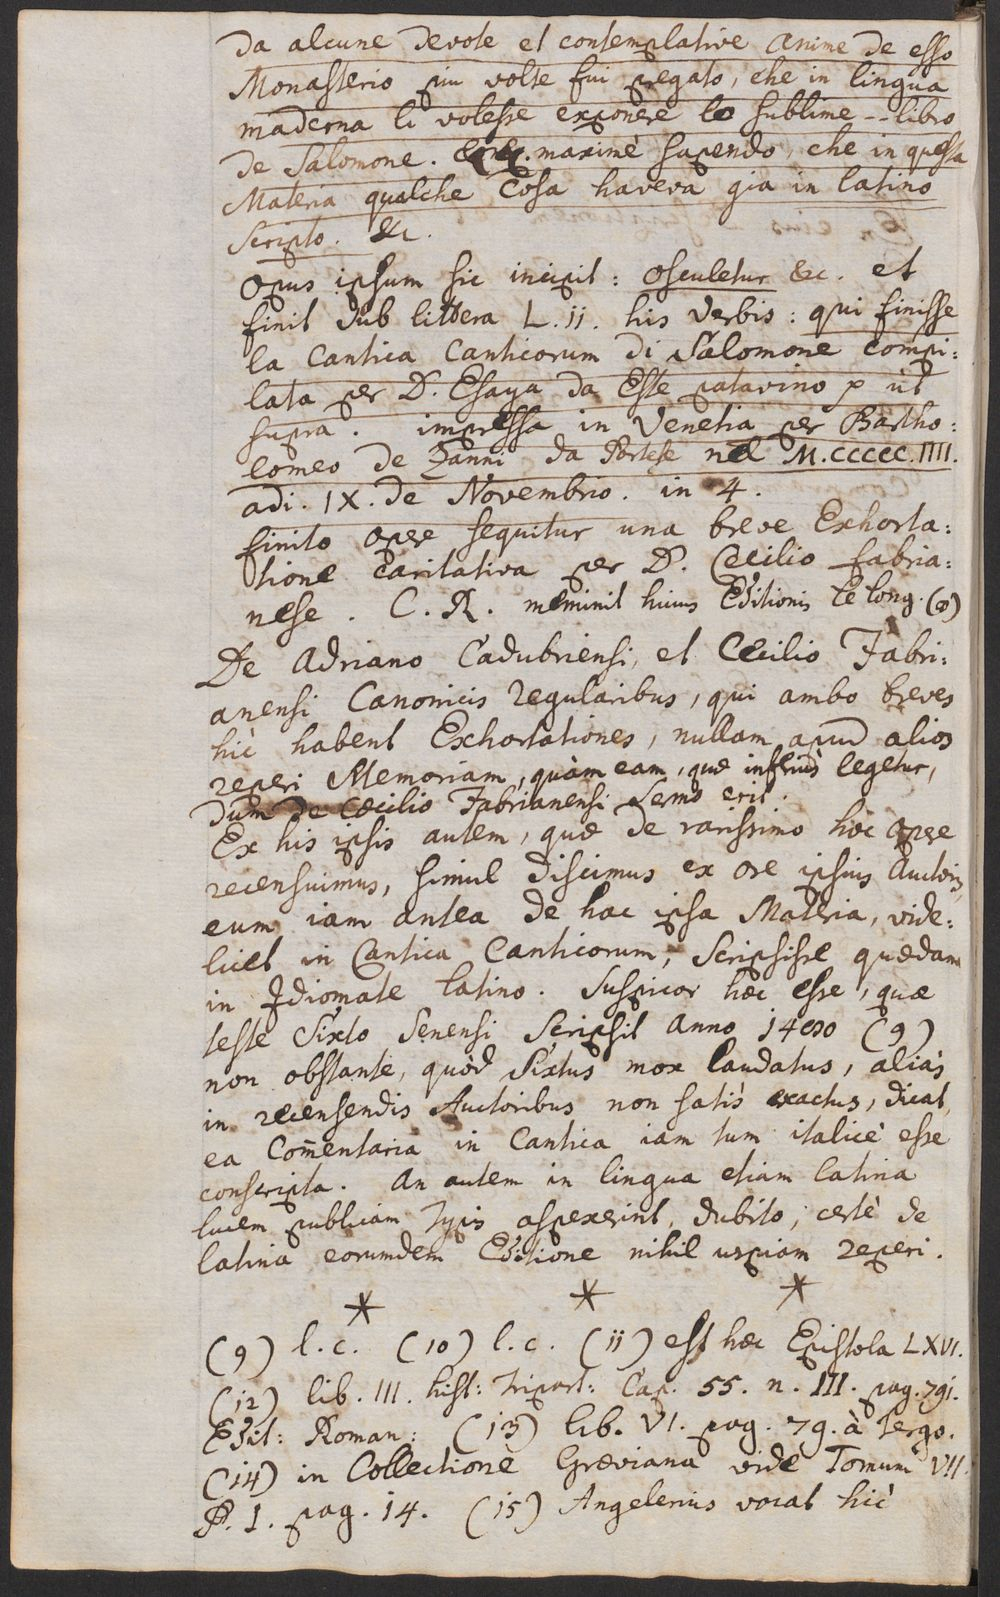 da alcune devote et contemplative anime de esso
Monasterio piu volte fui pregato, che in lingua
maderna li volesse exponere lo sublime -- libro
de Salomone. maximè sapendo, che in questa
Materia qualche Cosa haveva gia in latino
Scripto. &c.
Opus ipsum sic incipit: Osculetur &c. et
finit sub littera L.ii. his verbis: qui finisse
la Cantica Canticorum di Salomone compi:
lata per D. Esaya da Este patavino p ut
supra. impressa in Venetia per Bartho:
lomeo de Zanni da Portese nel M.CCCCC.IIII.
adi. IX. de Novembrio. in 4.
finito opere sequitur una breve Exhorta:
tione caritativa per D. Cecilio fabria:
nese. C. R. meminit huius Editionis le long. (8)
De Adriano Cadubriensi, et Cecilio Fabri:
anensi Canonicis regularibus, qui ambo breves
hic habent Exhortationes, nullam apud alios
reperi Memoriam, quàm eam, quæ inferiùs legetur,
dum de Cæcilio Fabrianensi sermo erit.
Ex his ipsis autem, quæ de rarissimo hoc opere
recensuimus, simul discimus ex ore ipsius Auctoris,
eum iam antea de hac ipsa Materia, vide:
licet in Cantica Canticorum, scripsisse quædam
in Idiomate latino. Suspicor hæc esse, quæ
teste Sixto Senensi scripsit anno (9)
non obstante, quòd Sixtus mox laudatus, aliàs
in recensendis Auctoribus non satis exactus, dicat,
ea Com̄entaria in Cantica iam tum italicè esse
conscripta. An autem in lingua etiam latina
lucem publicam Typis aspexerint, dubito; certè de
latina eorumdem Editione nihil uspiam reperi.
* * *
(9) l.c. (10) l.c. (ii) est hæc Epistola LXVI.
(12) lib. III. hist: Tripart: Cap. 55. n. III. pag. 791.
Edit: Roman: (13) lib. VI. pag. 79. à tergo.
(14) in Collectione Græviana vide Tomum VII.
P. I. pag. 14. (15) Angelerius vocat hic